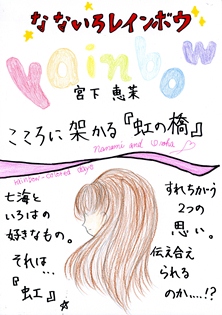 なないろレインボウ
rainbow
宮下 恵茉
こころに架かる『虹の橋』
Nanami and Iroha
rainbow-colored days
すれちがう
2つの
思い。
伝え合え
られる
のか……!?
七海と
いろはの
好きなもの。
それは…
『虹』